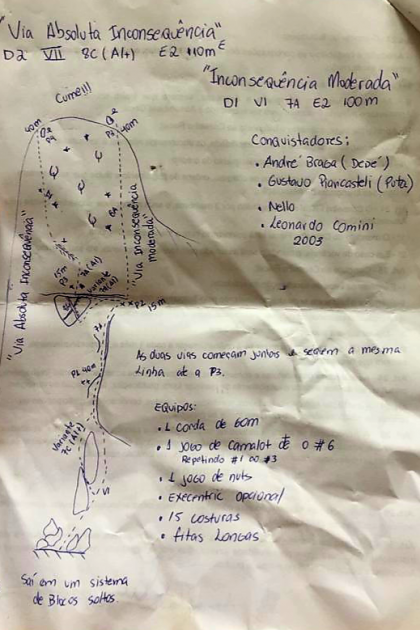 "Via Absoluta Inconsequência"
D2 VII 8C (A1+) E2 110m
"Inconsequência Moderada"
D1 VI 7A E2 100m
Cume!!!
40m
P4
40m
Conquistadores:
• André Braga (Dedé)
• Gustavo Piancasteli (Puta)
• Nello
• Leonardo Comini
2003
"Via Absoluta Inconsequência"
"Via Inconsequência moderada"
15m
P3
7a (A1)
Variante
P2 15m
As duas vias começam juntas e seguem a mesma
linha até a P3.
P1 40m
Variante
7C (A1+)
Equipos:
• 1 corda de 60m
• 1 jogo de camalot de 0 #6
Repetindo #1 ao #3
• 1 jogo de nuts
• Execentric opcional
• 15 costuras
• fitas Longas
Sai em um sistema
de Blocos soltos.